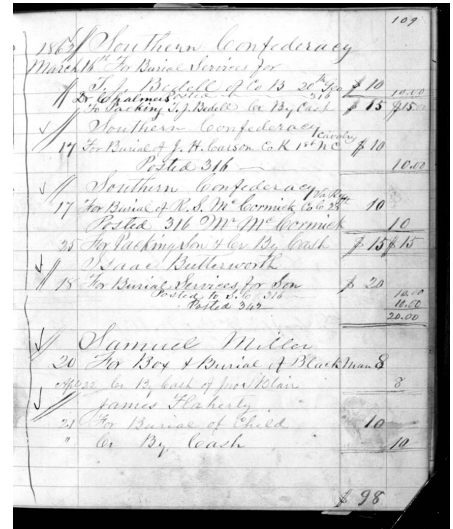 109
1862 Southern Confederacy
March 16th For Burial Services for
T. J. Bedell of Co B 20th Geo $10
Posted 316 10.00
Dr. Chalmers
To Packing T. J. Bedell Cr By Cash $15 $15
Southern Confederacy
Cavalry
17 For Burial of J. H. Carson Co K 1st N C $10
Posted 316 10.00
Southern Confederacy
17 For Burial of R. S. McCormick Co C 10
Posted 316 Mr McCormick 10
25 For Packing Son & Cr By Cash $15 $15
Isaac Butterworth
18 For Burial Services for Son $20
Posted to S. C. 316 10.00
Posted 342 10.00
20.00
Samuel Miller
20 For Box & Burial of Black Man 8
22 Cr By Cash of Jno Blair 8
James Flaherty
21 For Burial of Child 10
" Cr By Cash 10
$98